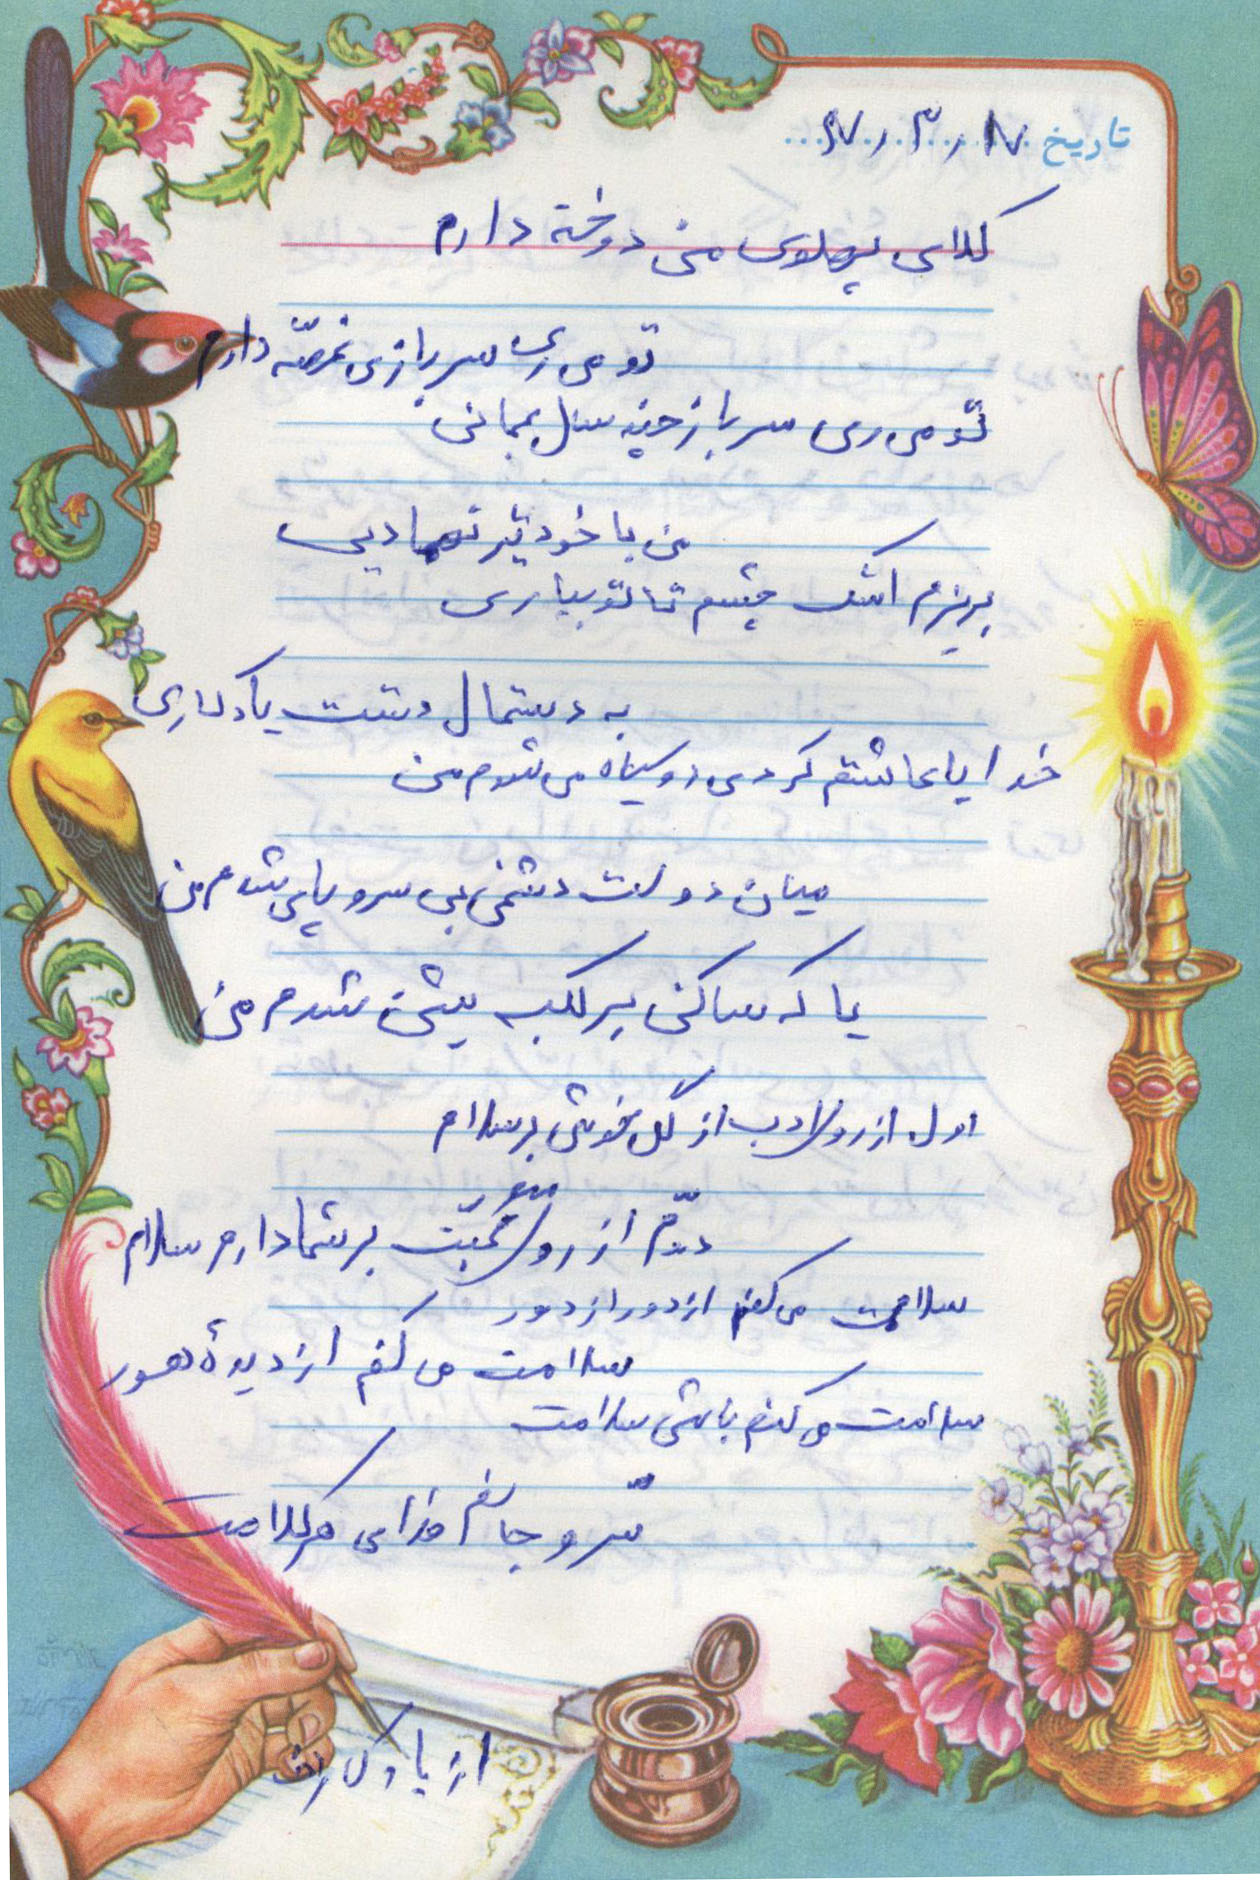 تاریخ ۶۷٫۳٫۱۷
کلای پهلوی منی دوخته دارم
تو می ری سربازی غصّه دارم
تو می ری سرباز چند سال بمانی
من با خود تیر تنها دیی
بریزم اشک چشم تا تو بیاری
به دستمال دستت یادگاری
خدایا عاشقم کردی روسیاه می شدم من
میان دولت دشمنی بی سروپایی شدم من
یا که ساکنی بر کلبه پیشی شدم من
اول از روی ادب از گل خوشی بر سلام
دوّم از روی محبّت بر شما دارم سلام
سلامت می کنم از دور از دور
سلامت می کنم از دیدهٔ هور
سلامت می کنم باشی سلامت
سّرو جانم فدای هر کلامت
از یادگاری